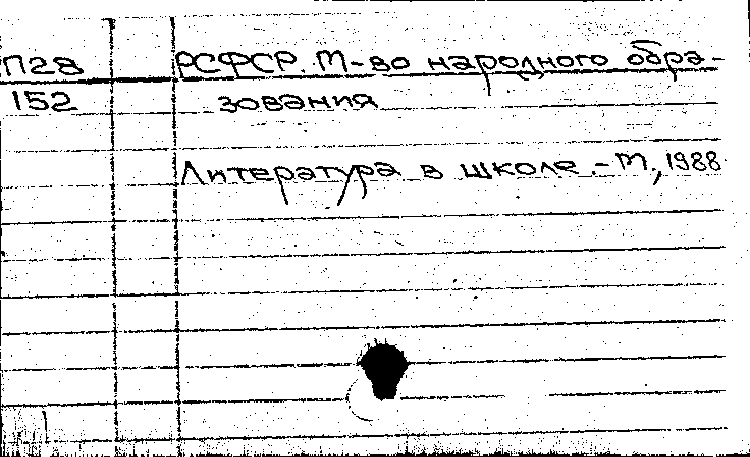 П28 РСФСР. М-во народного обра-
152 зования
Литература в школе. - М., 1988